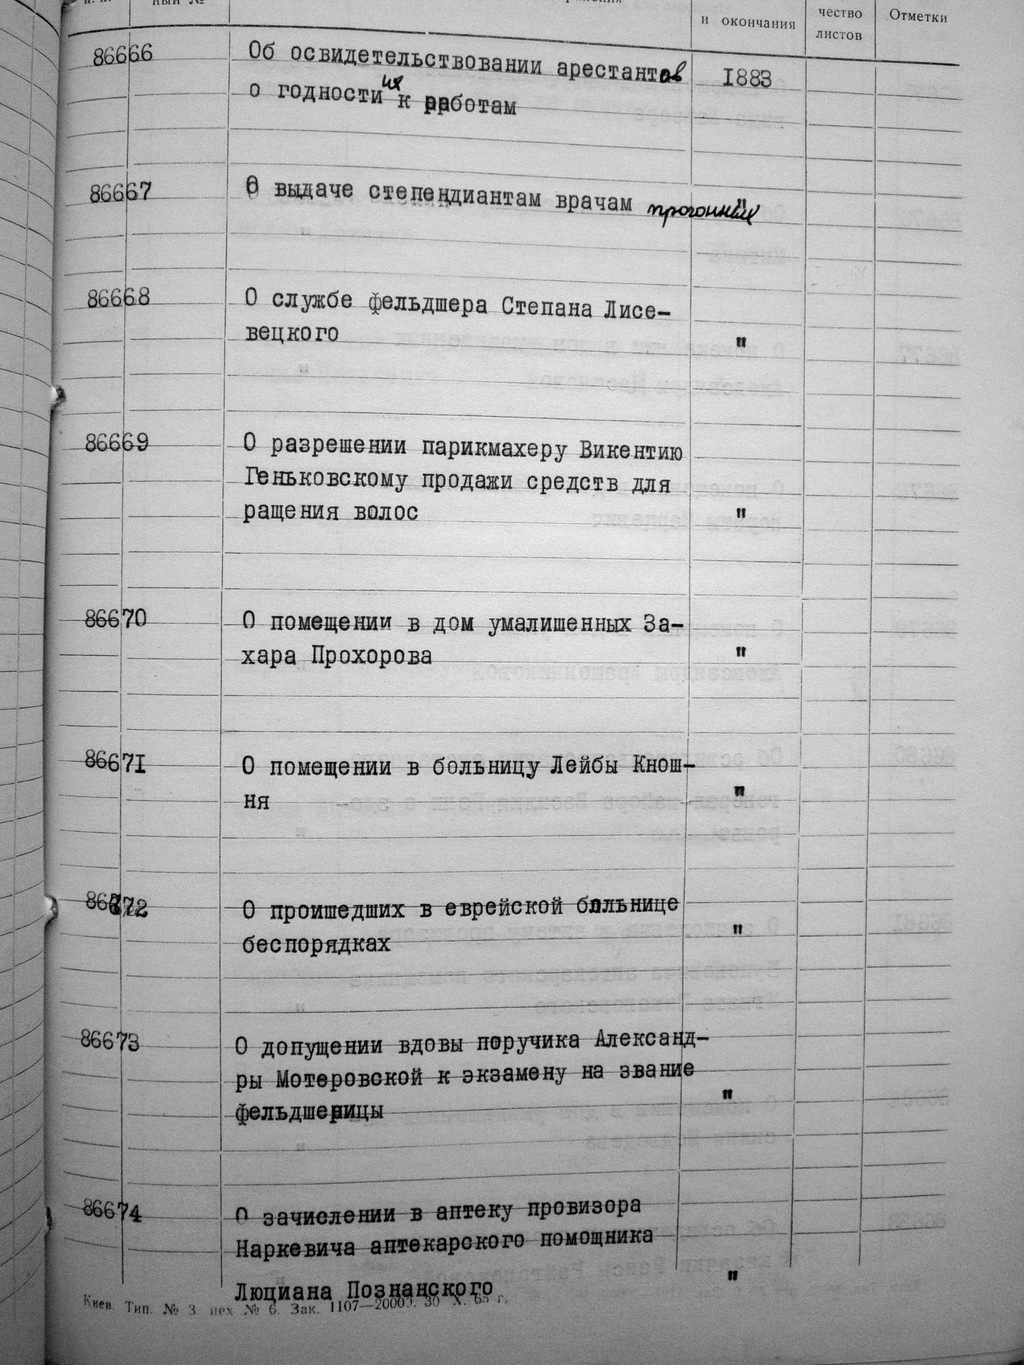 и окончания
чество
листов
Отметки
86666 Об освидетельствовании арестантов 1883
о годности их к работам
86667 О выдаче степендиантам врачам прогонные "
86668 О службе фельдшера Степана Лисе-
вецкого "
86669 О разрешении парикмахеру Викентию
Геньковскому продажи средств для
ращения волос "
86670 О помещении в дом умалишенных За-
хара Прохорова "
86671 О помещении в больницу Лейбы Кнош-
ня "
86672 О проишедших в еврейской больнице
беспорядках "
86673 О допущении вдовы поручика Александ-
ры Мотеровской к экзамену на звание
фельдшерицы "
86674 О зачислении в аптеку провизора
Наркевича аптекарского помощника
Люциана Познанского "
Киев. Тип. № 3. цех № 6. Зак. 1107—20000. 30 X. 65 г.